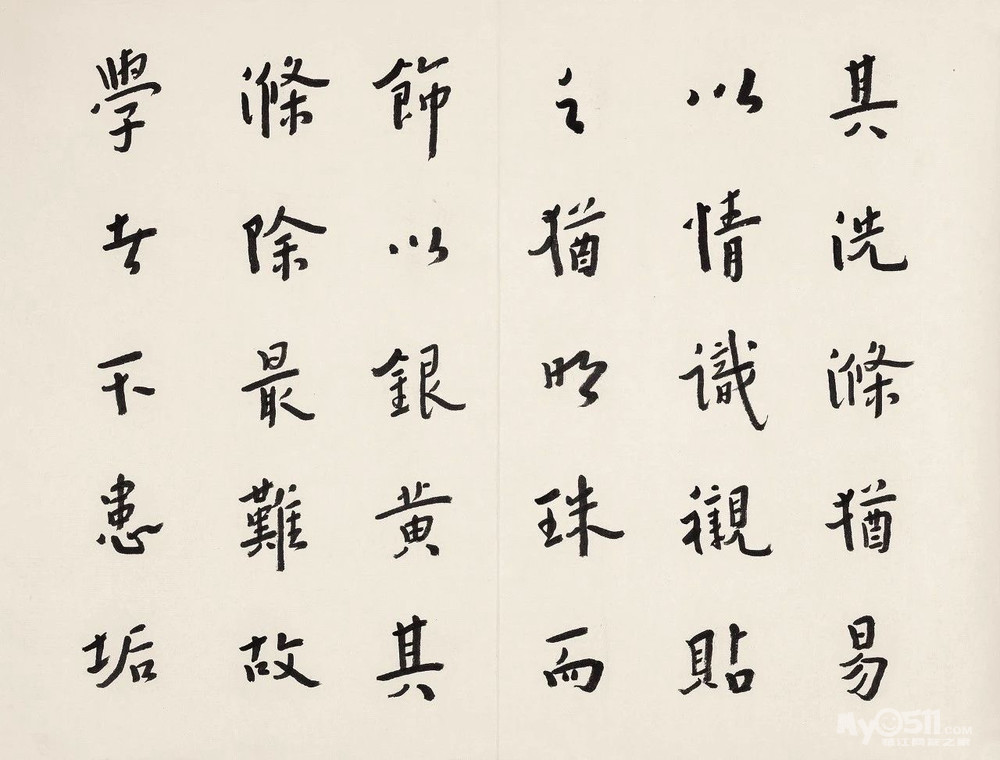 其洗滌猶易
以情識襯貼
之猶明珠而
飾以銀黃其
滌除最難故
學者不患垢
My0511.COM